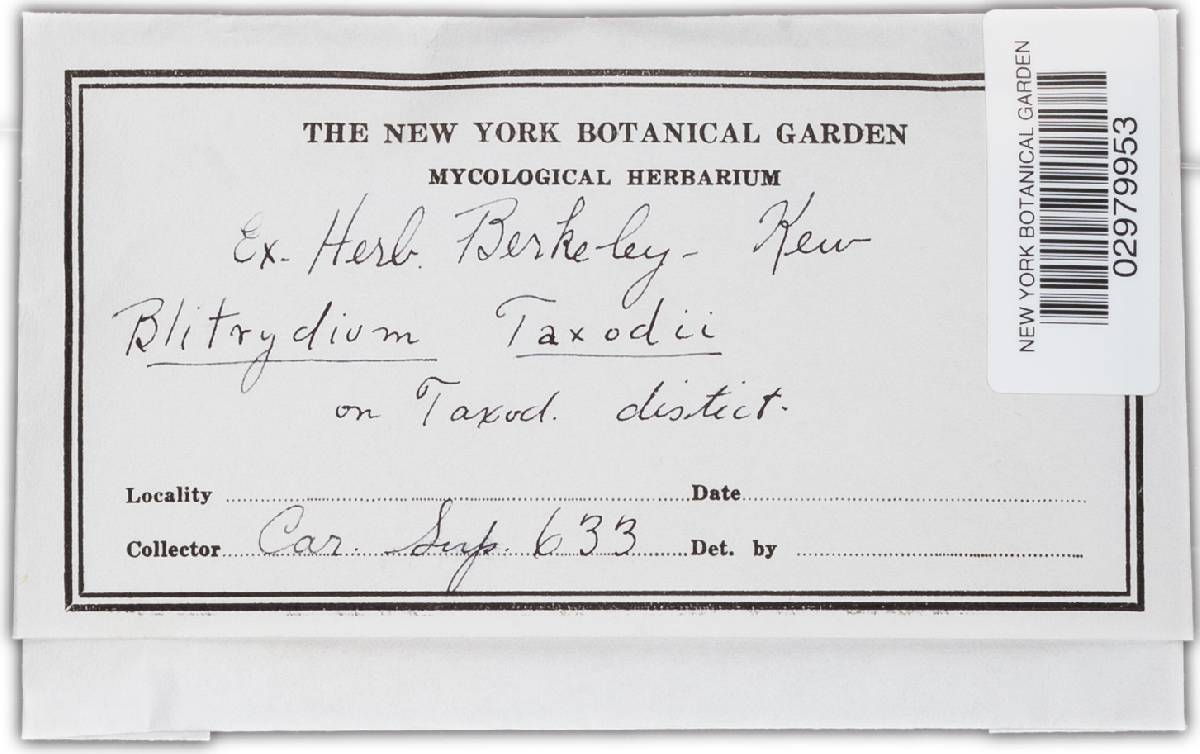 THE NEW YORK BOTANICAL GARDEN
MYCOLOGICAL HERBARIUM
Ex. Herb. Berkeley - Kew
Blitrydium Taxodii
on Taxod. distict.
Locality Date
Collector Car. Sup. 633 Det. by
NEW YORK BOTANICAL GARDEN
02979953